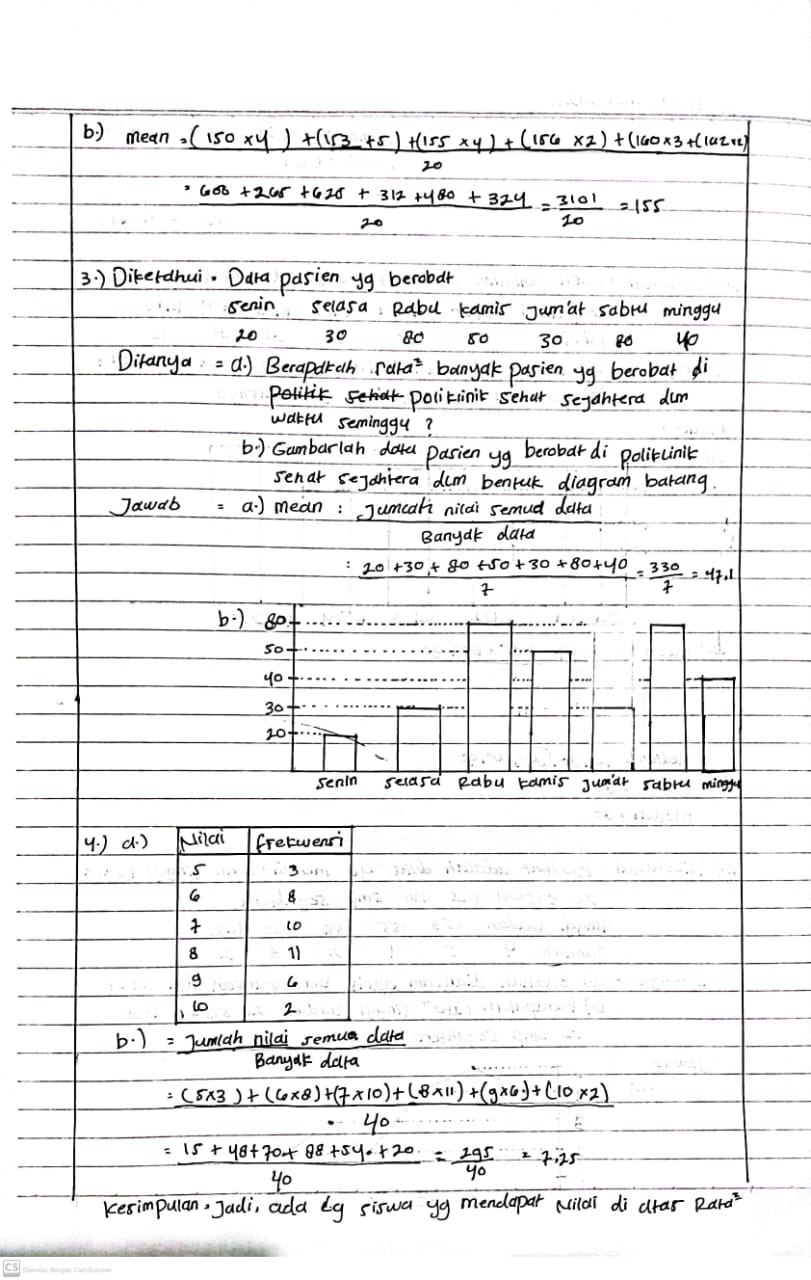 b.) mean = (150 x 4) + (153 + 5) + (155 x 4) + (156 x 2) + (160 x 3 + (162 x 2)
20
= 600 + 265 + 620 + 312 + 480 + 324 = 3101 = 155
20 20
3.) Diketahui = Data pasien yg berobat
senin selasa Rabu kamis Jum'at sabtu minggu
20 30 80 50 30 80 40
Ditanya = a.) Berapakah rata² banyak pasien yg berobat di
Politik sehat poliklinik sehat sejahtera dlm
waktu seminggu ?
b.) Gambarlah data pasien yg berobat di poliklinik
sehat sejahtera dlm bentuk diagram batang.
Jawab = a.) mean : Jumlah nilai semua data
Banyak data
: 20 + 30 + 80 + 50 + 30 + 80 + 40 = 330 = 47,1
7 7
b.) 80
50
40
30
20
senin selasa Rabu kamis jum'at sabtu minggu
4.) a.) Nilai frekwensi
5 3
6 8
7 10
8 11
9 6
10 2
b.) = Jumlah nilai semua data
Banyak data
= (5x3) + (6x8) + (7x10) + (8x11) + (9x6) + (10x2)
40
= 15 + 48 + 70 + 88 + 54 + 20 = 295 = 7,25
40 40
Kesimpulan = Jadi, ada 19 siswa yg mendapat Nilai di atas Rata²
CS Dipindai dengan CamScanner